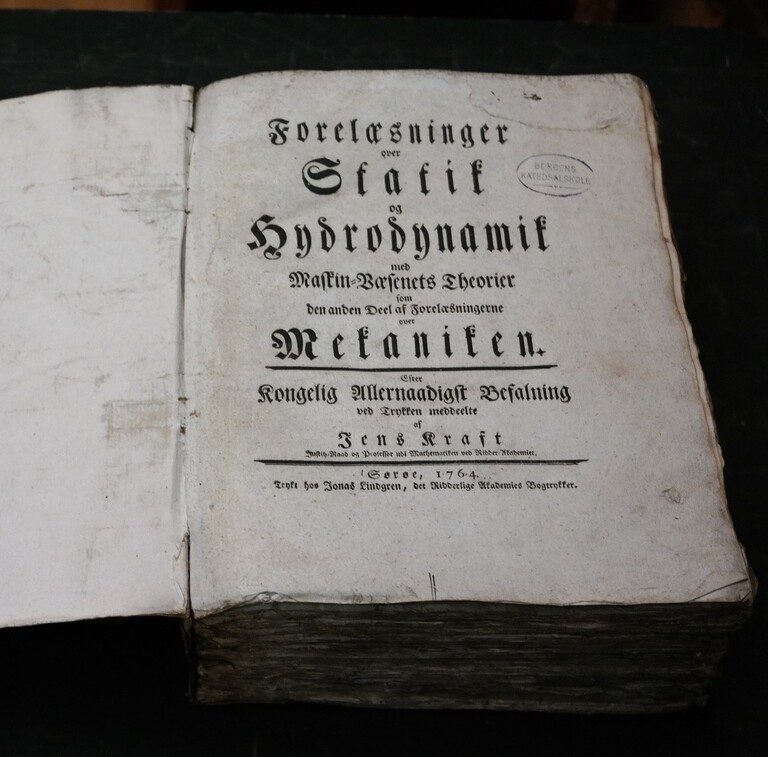 Forelæsninger
over
Statik
og
Hydrodynamik
med
Maskin-Væsenets Theorier
som
den anden Deel af Forelæsningerne
over
Mekaniken.
Efter
Kongelig Allernaadigst Befalning
ved Trykken meddeelte
af
Jens Kraft
Justitz-Raad og Professer udi Mathematiken ved Ridder-Akademiet.
Sorøe, 1764.
Trykt hos Jonas Lindgren, det Ridderlige Akademies Bogtrykker.
BERGENS
KATEDRALSKOLE